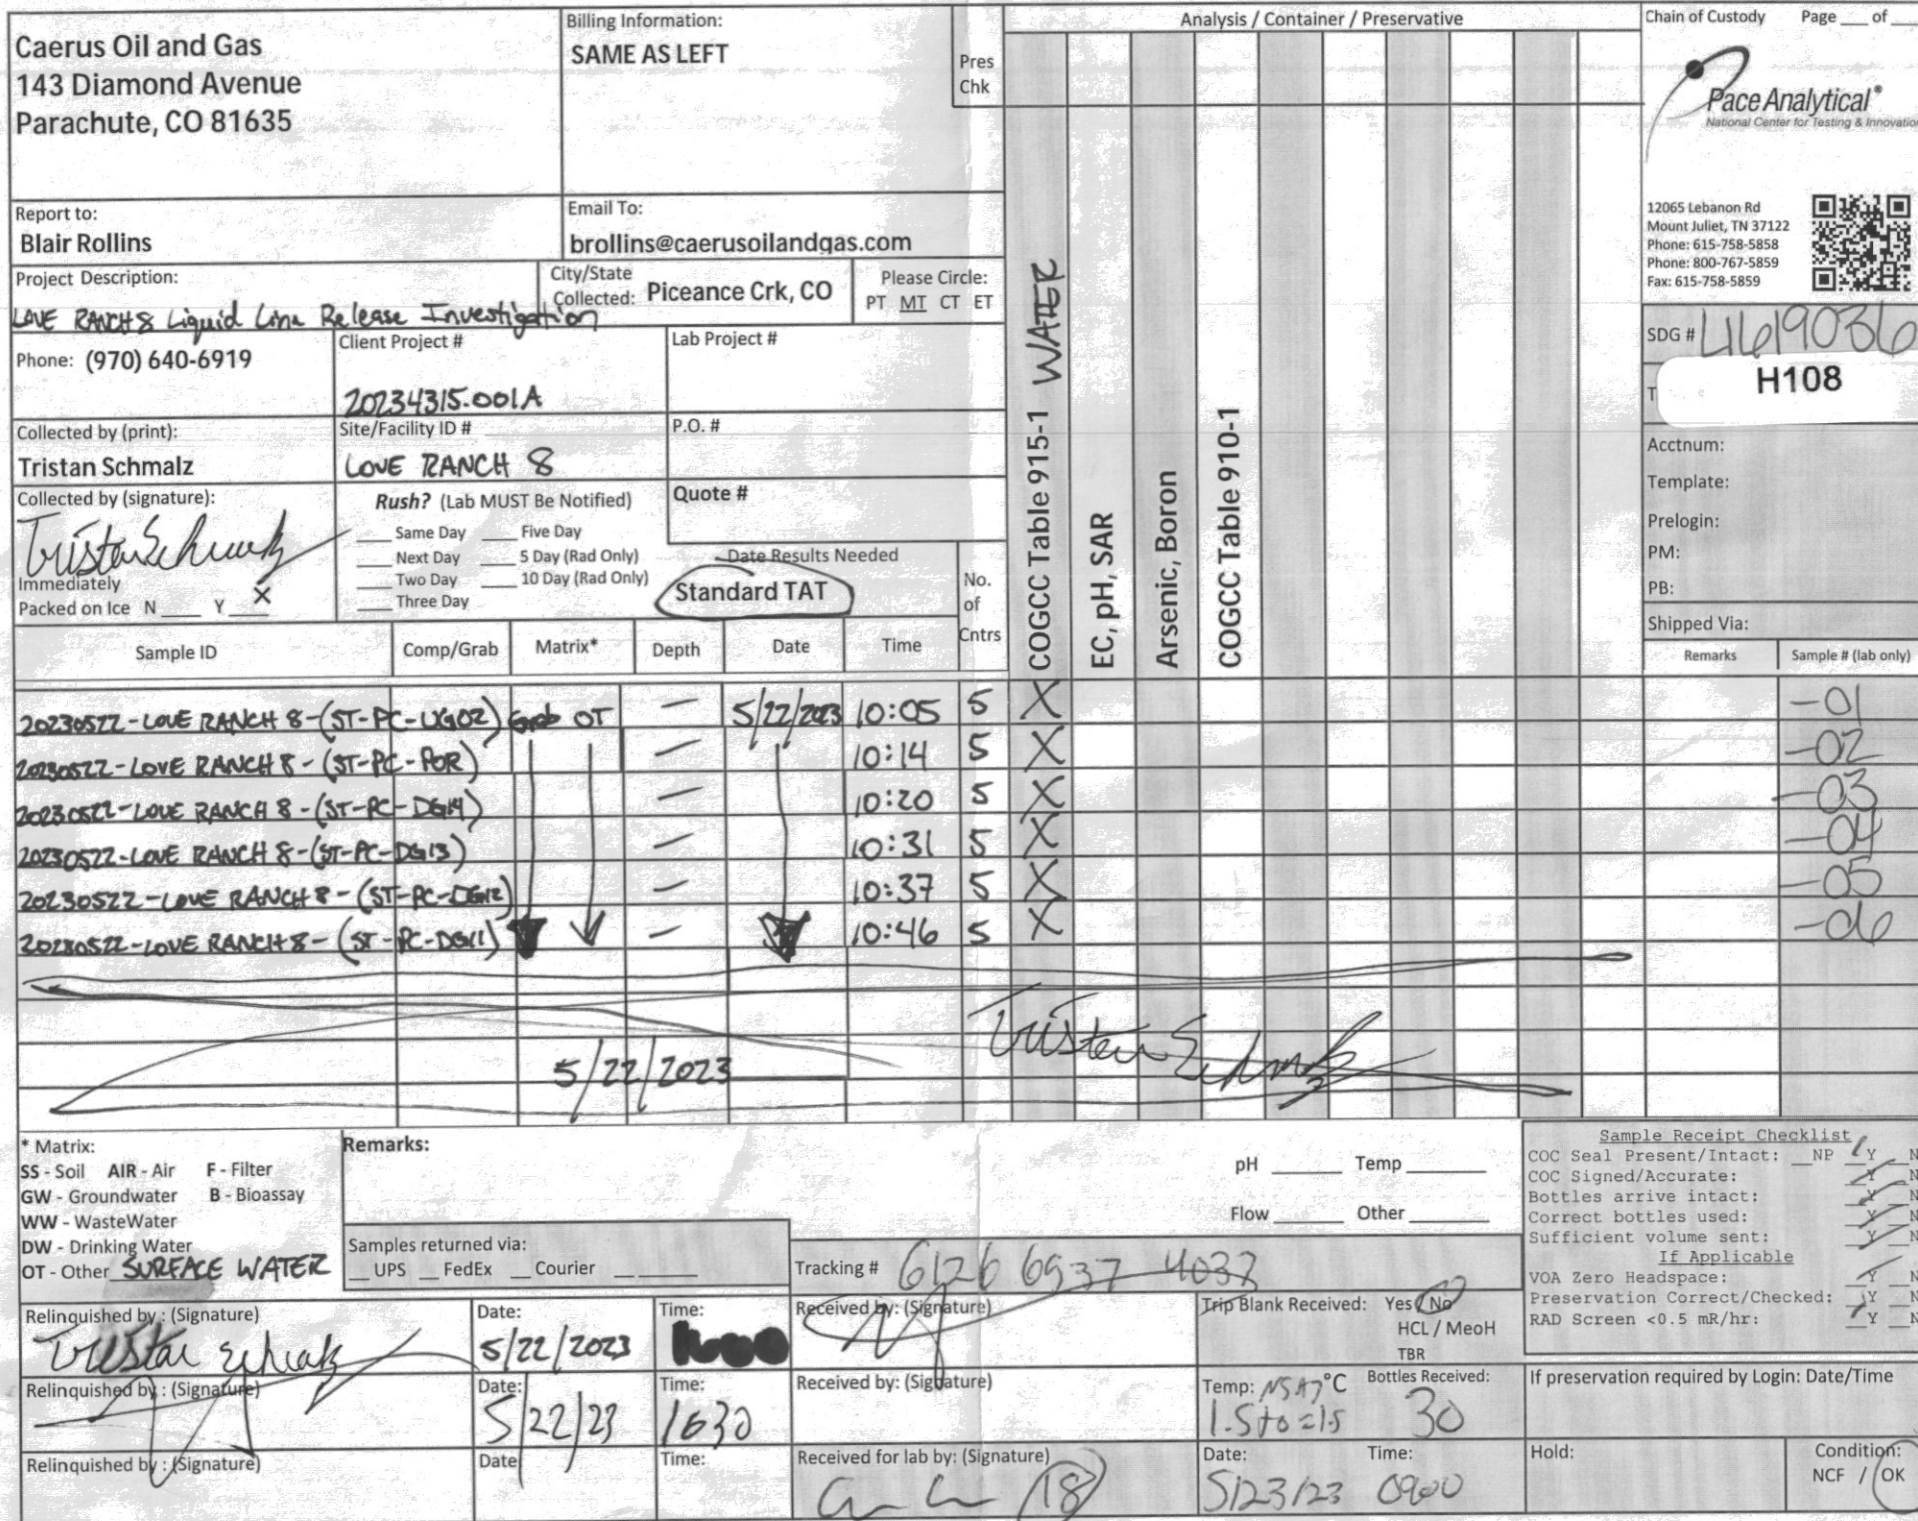 Caerus Oil and Gas
143 Diamond Avenue
Parachute, CO 81635
Billing Information:
SAME AS LEFT
Pres
Chk
Analysis / Container / Preservative
Chain of Custody Page ___ of ___
Pace Analytical®
National Center for Testing & Innovation
12065 Lebanon Rd
Mount Juliet, TN 37122
Phone: 615-758-5858
Phone: 800-767-5859
Fax: 615-758-5859
Report to:
Blair Rollins
Email To:
brollins@caerusoilandgas.com
Project Description:
LOVE RANCH 8 Liquid Line Release Investigation
City/State
Collected: Piceance Crk, CO
Please Circle:
PT MT CT ET
Phone: (970) 640-6919
Client Project #
20234315.001A
Lab Project #
Collected by (print):
Tristan Schmalz
Site/Facility ID #
LOVE RANCH 8
P.O. #
Collected by (signature):
Tristan Schmalz
Immediately
Packed on Ice N ___ Y X
Rush? (Lab MUST Be Notified)
___ Same Day ___ Five Day
___ Next Day ___ 5 Day (Rad Only)
___ Two Day ___ 10 Day (Rad Only)
___ Three Day
Quote #
Date Results Needed
Standard TAT
No.
of
Cntrs
COGCC Table 915-1 WATER
EC, pH, SAR
Arsenic, Boron
COGCC Table 910-1
SDG # L1619036
T
H108
Acctnum:
Template:
Prelogin:
PM:
PB:
Shipped Via:
Sample ID Comp/Grab Matrix* Depth Date Time Remarks Sample # (lab only)
20230522-LOVE RANCH 8-(ST-PC-UG02) Grab OT — 5/22/2023 10:05 5 X -01
20230522-LOVE RANCH 8-(ST-PC-POR) — 10:14 5 X -02
20230522-LOVE RANCH 8-(ST-PC-DG14) — 10:20 5 X -03
20230522-LOVE RANCH 8-(ST-PC-DG13) — 10:31 5 X -04
20230522-LOVE RANCH 8-(ST-PC-DG12) — 10:37 5 X -05
20230522-LOVE RANCH 8-(ST-PC-DG11) — 10:46 5 X -06
Tristan Schmalz
5/22/2023
* Matrix:
SS - Soil AIR - Air F - Filter
GW - Groundwater B - Bioassay
WW - WasteWater
DW - Drinking Water
OT - Other SURFACE WATER
Remarks:
pH ______ Temp ______
Flow ______ Other ______
Samples returned via:
__ UPS __ FedEx __ Courier __ ______
Tracking # 6126 6937 4037
Sample Receipt Checklist
COC Seal Present/Intact: __NP __Y __N
COC Signed/Accurate: __Y __N
Bottles arrive intact: __Y __N
Correct bottles used: __Y __N
Sufficient volume sent: __Y __N
If Applicable
VOA Zero Headspace: __Y __N
Preservation Correct/Checked: __Y __N
RAD Screen <0.5 mR/hr: __Y __N
Relinquished by : (Signature)
Tristan Schmalz
Date:
5/22/2023
Time:
Received by: (Signature)
Trip Blank Received: Yes / No
HCL / MeoH
TBR
Relinquished by : (Signature)
Date:
5/22/23
Time:
1630
Received by: (Signature)
Temp: °C
1.5+0=1.5
Bottles Received:
30
If preservation required by Login: Date/Time
Relinquished by : (Signature)
Date
Time:
Received for lab by: (Signature)
Date:
5/23/23
Time:
0900
Hold:
Condition:
NCF / OK